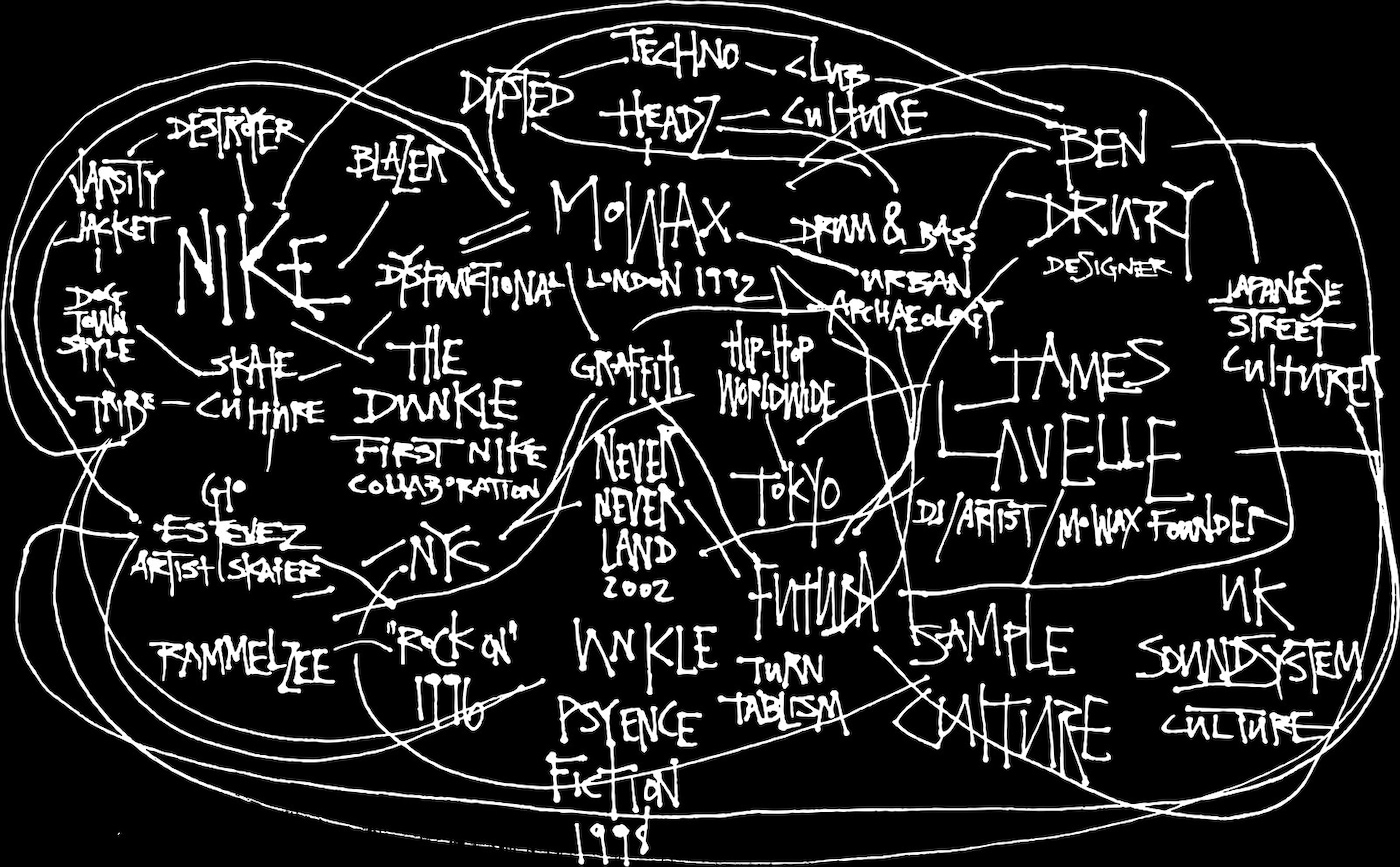 TECHNO CLUB
DUSTED
HEADZ CULTURE
DESTROYER
BLAZER
BEN
DRURY
DESIGNER
VARSITY
JACKET
NIKE
MOWAX
LONDON 1992
DRUM & BASS
URBAN
ARCHAEOLOGY
DYSFUNCTIONAL
DOG
TOWN
STYLE
JAPANESE
STREET
CULTURE
SKATE
CULTURE
TRIBE
THE
DUNKLE
FIRST NIKE
COLLABORATION
GRAFFITI
HIP-HOP
WORLDWIDE
JAMES
LAVELLE
DJ/ARTIST/MOWAX FOUNDER
NEVER
NEVER
LAND
2002
TOKYO
GIO
ESTEVEZ
ARTIST/SKATER
NYC
FUTURA
RAMMELZEE
"ROCK ON"
1996
UNKLE
PSYENCE
FICTION
1998
TURN
TABLISM
SAMPLE
CULTURE
UK
SOUNDSYSTEM
CULTURE